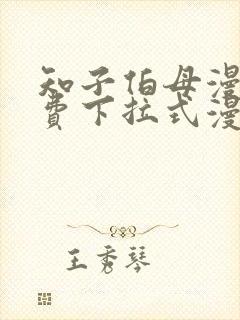 知子伯母漫
费下拉式漫
王秀琴